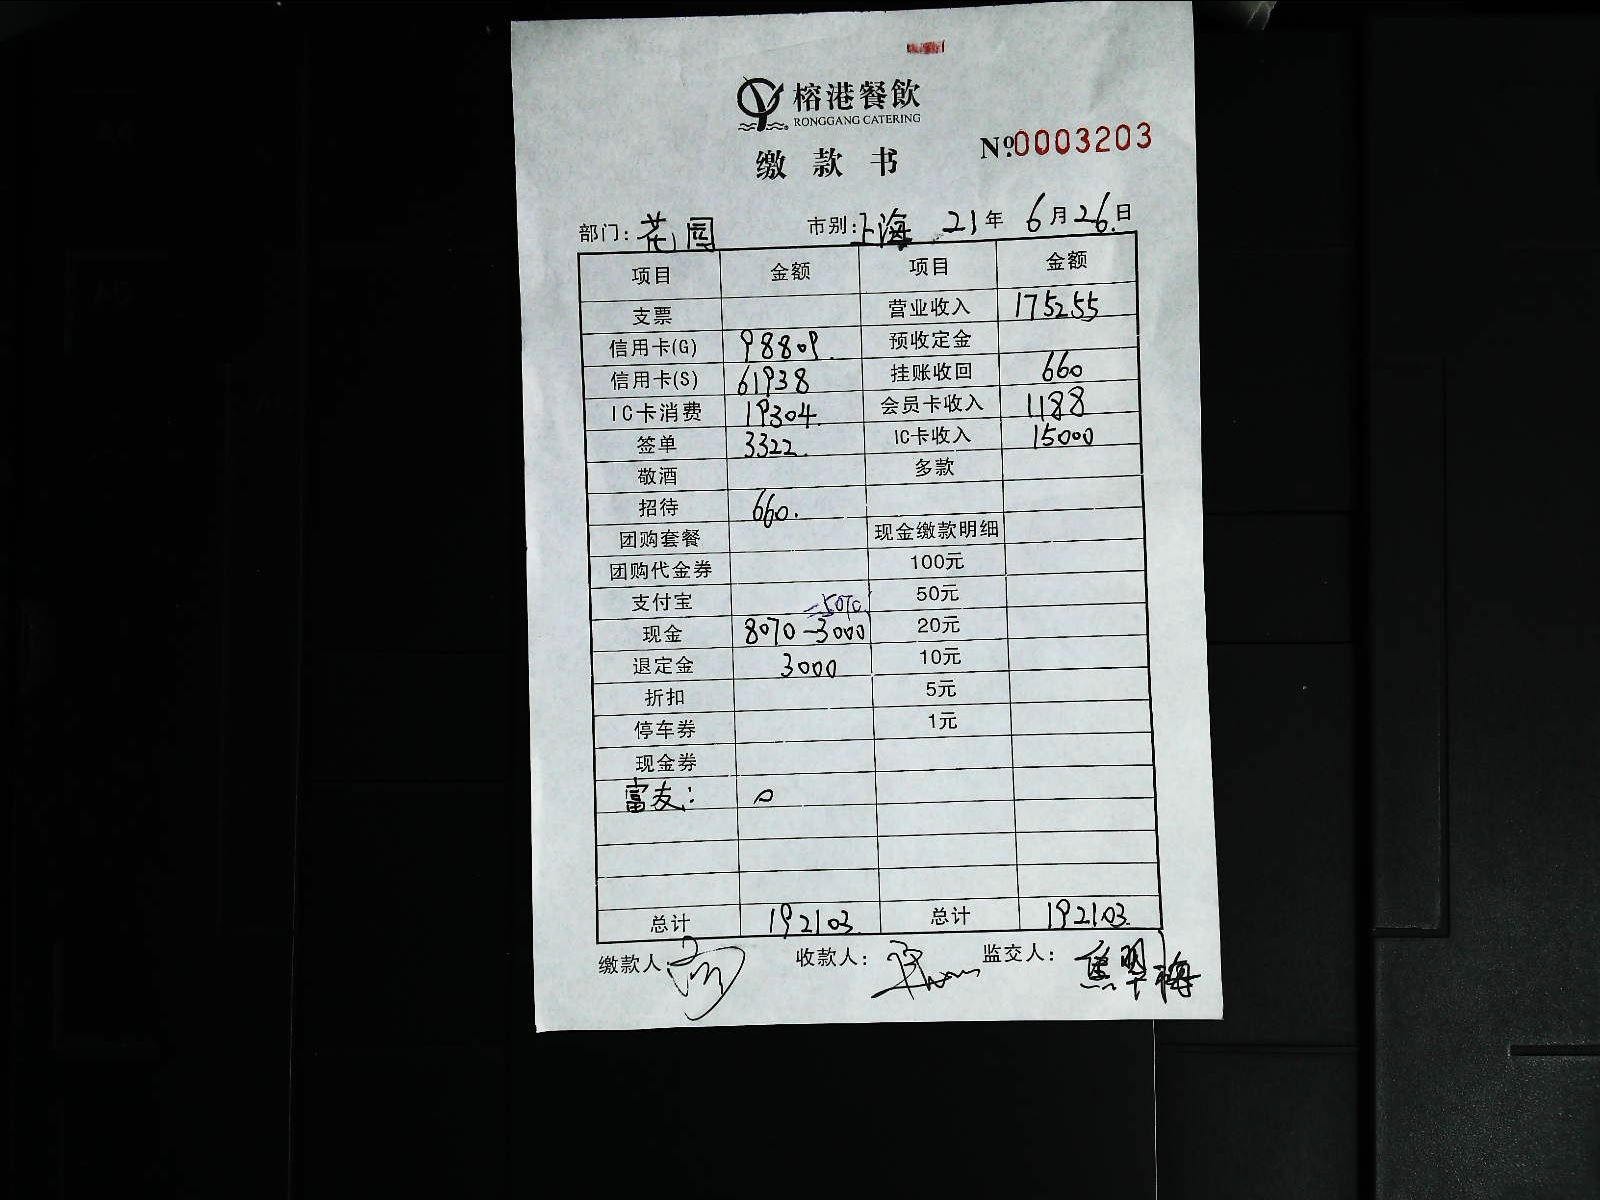 榕港餐飲
RONGGANG CATERING
№0003203
缴款书
部门: 花园 市别: 上海 21年 6月26日
项目 金额 项目 金额
支票 营业收入 175255
信用卡(G) 98809 预收定金
信用卡(S) 61938 挂账收回 660
IC卡消费 19304. 会员卡收入 1188
签单 3322. IC卡收入 15000
敬酒 多款
招待 660.
团购套餐 现金缴款明细
团购代金券 100元
支付宝 50元
=5070
现金 8070-3000 20元
退定金 3000 10元
折扣 5元
停车券 1元
现金券
富友: 0
总计 192103. 总计 192103.
缴款人 收款人: 监交人: